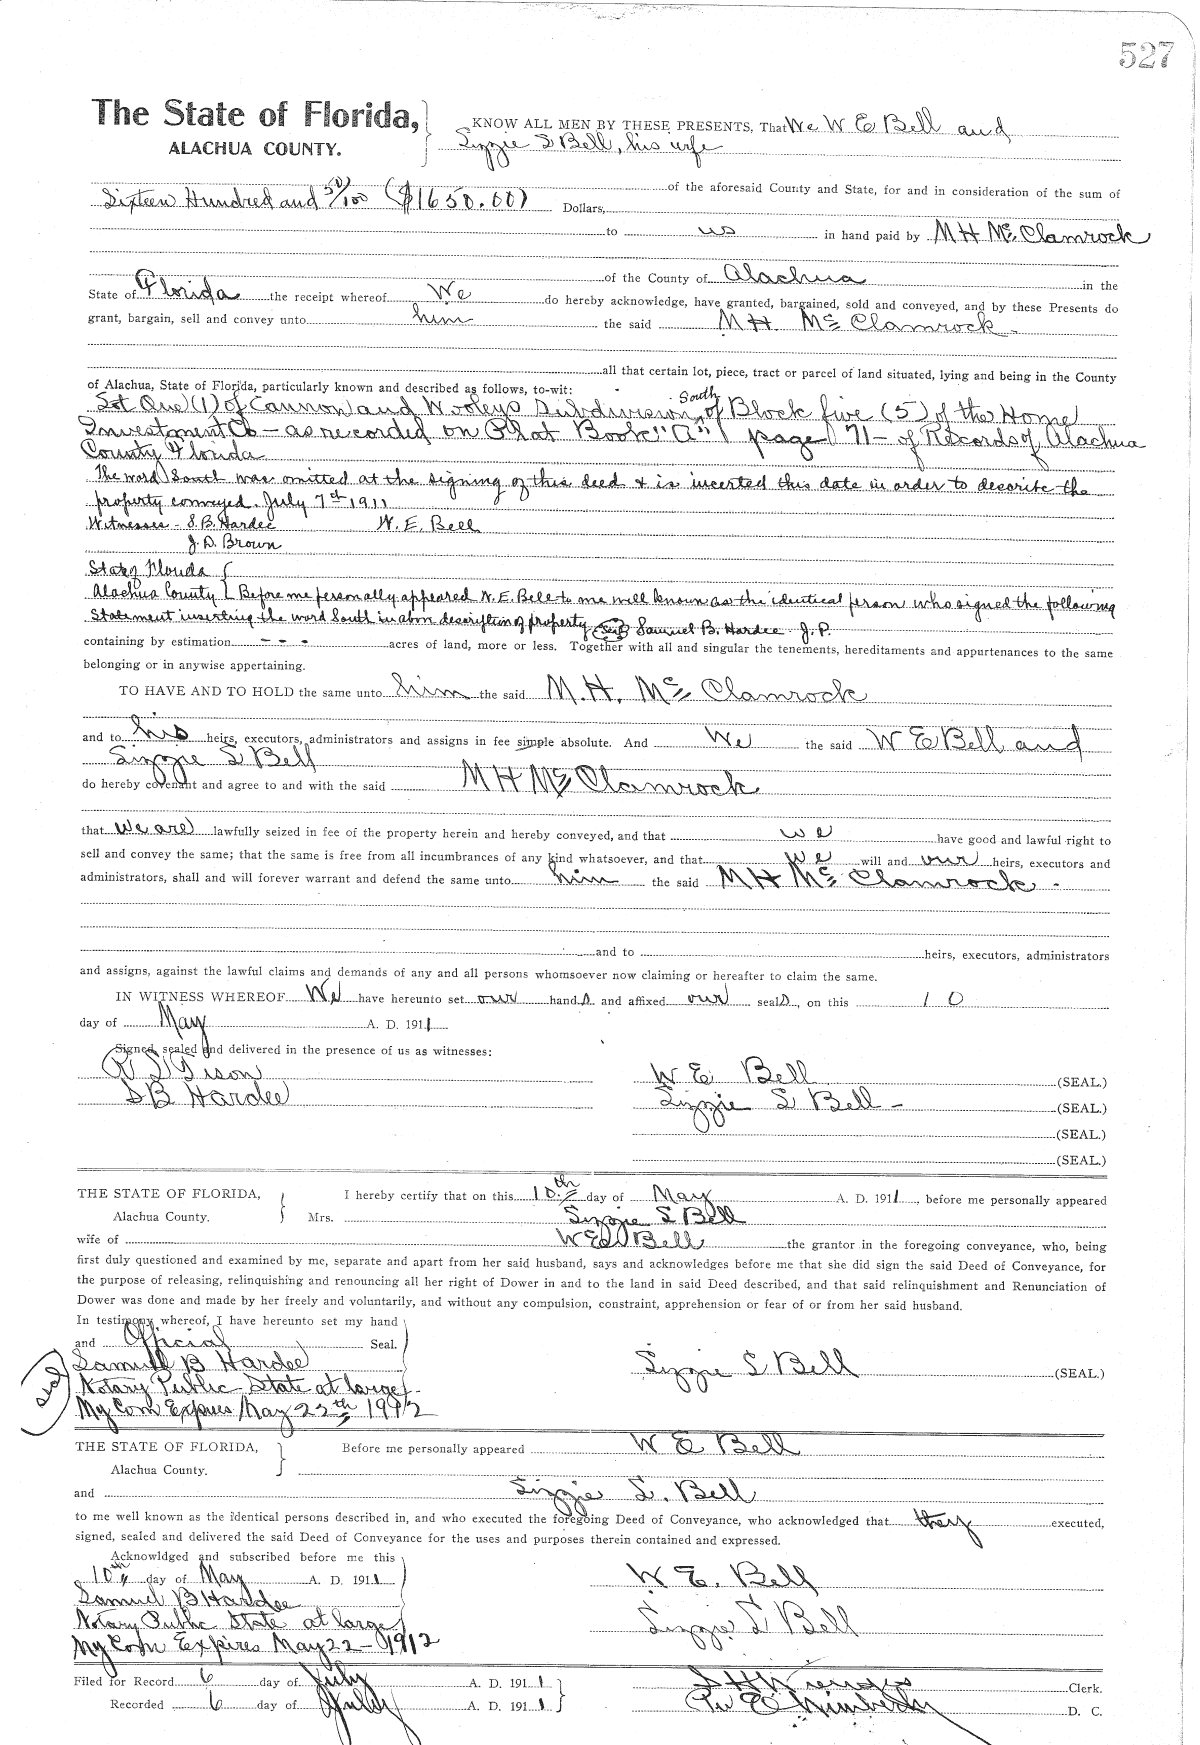 527
The State of Florida,
ALACHUA COUNTY.
KNOW ALL MEN BY THESE PRESENTS, That We W E Bell and
Lizzie S Bell, his wife
of the aforesaid County and State, for and in consideration of the sum of
Sixteen Hundred and 50/100 ($1650.00) Dollars,
to us in hand paid by M H Mc Clamrock
of the County of Alachua in the
State of Florida the receipt whereof We do hereby acknowledge, have granted, bargained, sold and conveyed, and by these Presents do
grant, bargain, sell and convey unto him the said M H. Mc Clamrock -
all that certain lot, piece, tract or parcel of land situated, lying and being in the County
of Alachua, State of Florida, particularly known and described as follows, to-wit:
Lot One (1) of Cannon and Wooleys Subdivision, South of Block five (5) of the Home
Investment Co - as recorded on Plat Book "A" page 71 - of Records of Alachua
County Florida
The word South was omitted at the signing of this deed & is incerted this date in order to describe the
property conveyed. July 7th 1911
Witnesses - S.B. Hardee W. E. Bell
J. D. Brown
State of Florida
Alachua County Before me personally appeared W. E. Bell to me well known as the identical person who signed the following
Statement inserting the word South in above description of property (Seal) Samuel B. Hardee J. P.
containing by estimation - - - acres of land, more or less. Together with all and singular the tenements, hereditaments and appurtenances to the same
belonging or in anywise appertaining.
TO HAVE AND TO HOLD the same unto him the said M. H. Mc Clamrock
and to his heirs, executors, administrators and assigns in fee simple absolute. And We the said W E Bell and
Lizzie S Bell
do hereby covenant and agree to and with the said M H Mc Clamrock
that we are lawfully seized in fee of the property herein and hereby conveyed, and that we have good and lawful right to
sell and convey the same; that the same is free from all incumbrances of any kind whatsoever, and that we will and our heirs, executors and
administrators, shall and will forever warrant and defend the same unto him the said M H Mc Clamrock -
and to heirs, executors, administrators
and assigns, against the lawful claims and demands of any and all persons whomsoever now claiming or hereafter to claim the same.
IN WITNESS WHEREOF We have hereunto set our hands and affixed our seals, on this 10
day of May A. D. 1911
Signed, sealed and delivered in the presence of us as witnesses:
W E Bell (SEAL.)
S B Hardee Lizzie S Bell - (SEAL.)
(SEAL.)
(SEAL.)
THE STATE OF FLORIDA, I hereby certify that on this 10th day of May A. D. 1911, before me personally appeared
Alachua County. Mrs. Lizzie S Bell
wife of W E Bell the grantor in the foregoing conveyance, who, being
first duly questioned and examined by me, separate and apart from her said husband, says and acknowledges before me that she did sign the said Deed of Conveyance, for
the purpose of releasing, relinquishing and renouncing all her right of Dower in and to the land in said Deed described, and that said relinquishment and Renunciation of
Dower was done and made by her freely and voluntarily, and without any compulsion, constraint, apprehension or fear of or from her said husband.
In testimony whereof, I have hereunto set my hand
and Official Seal.
Samuel B Hardee Lizzie S Bell (SEAL.)
Seal
Notary Public State at large
My Com Expires May 22th 1912
THE STATE OF FLORIDA, Before me personally appeared W E Bell
Alachua County.
and Lizzie S. Bell
to me well known as the identical persons described in, and who executed the foregoing Deed of Conveyance, who acknowledged that they executed,
signed, sealed and delivered the said Deed of Conveyance for the uses and purposes therein contained and expressed.
Acknowldged and subscribed before me this
10th day of May A. D. 1911 W E. Bell
Samuel B Hardee
Notary Public State at large Lizzie S Bell
My Com Expires May 22 - 1912
Filed for Record 6 day of July A. D. 1911 Clerk.
Recorded 6 day of July A. D. 1911 D. C.